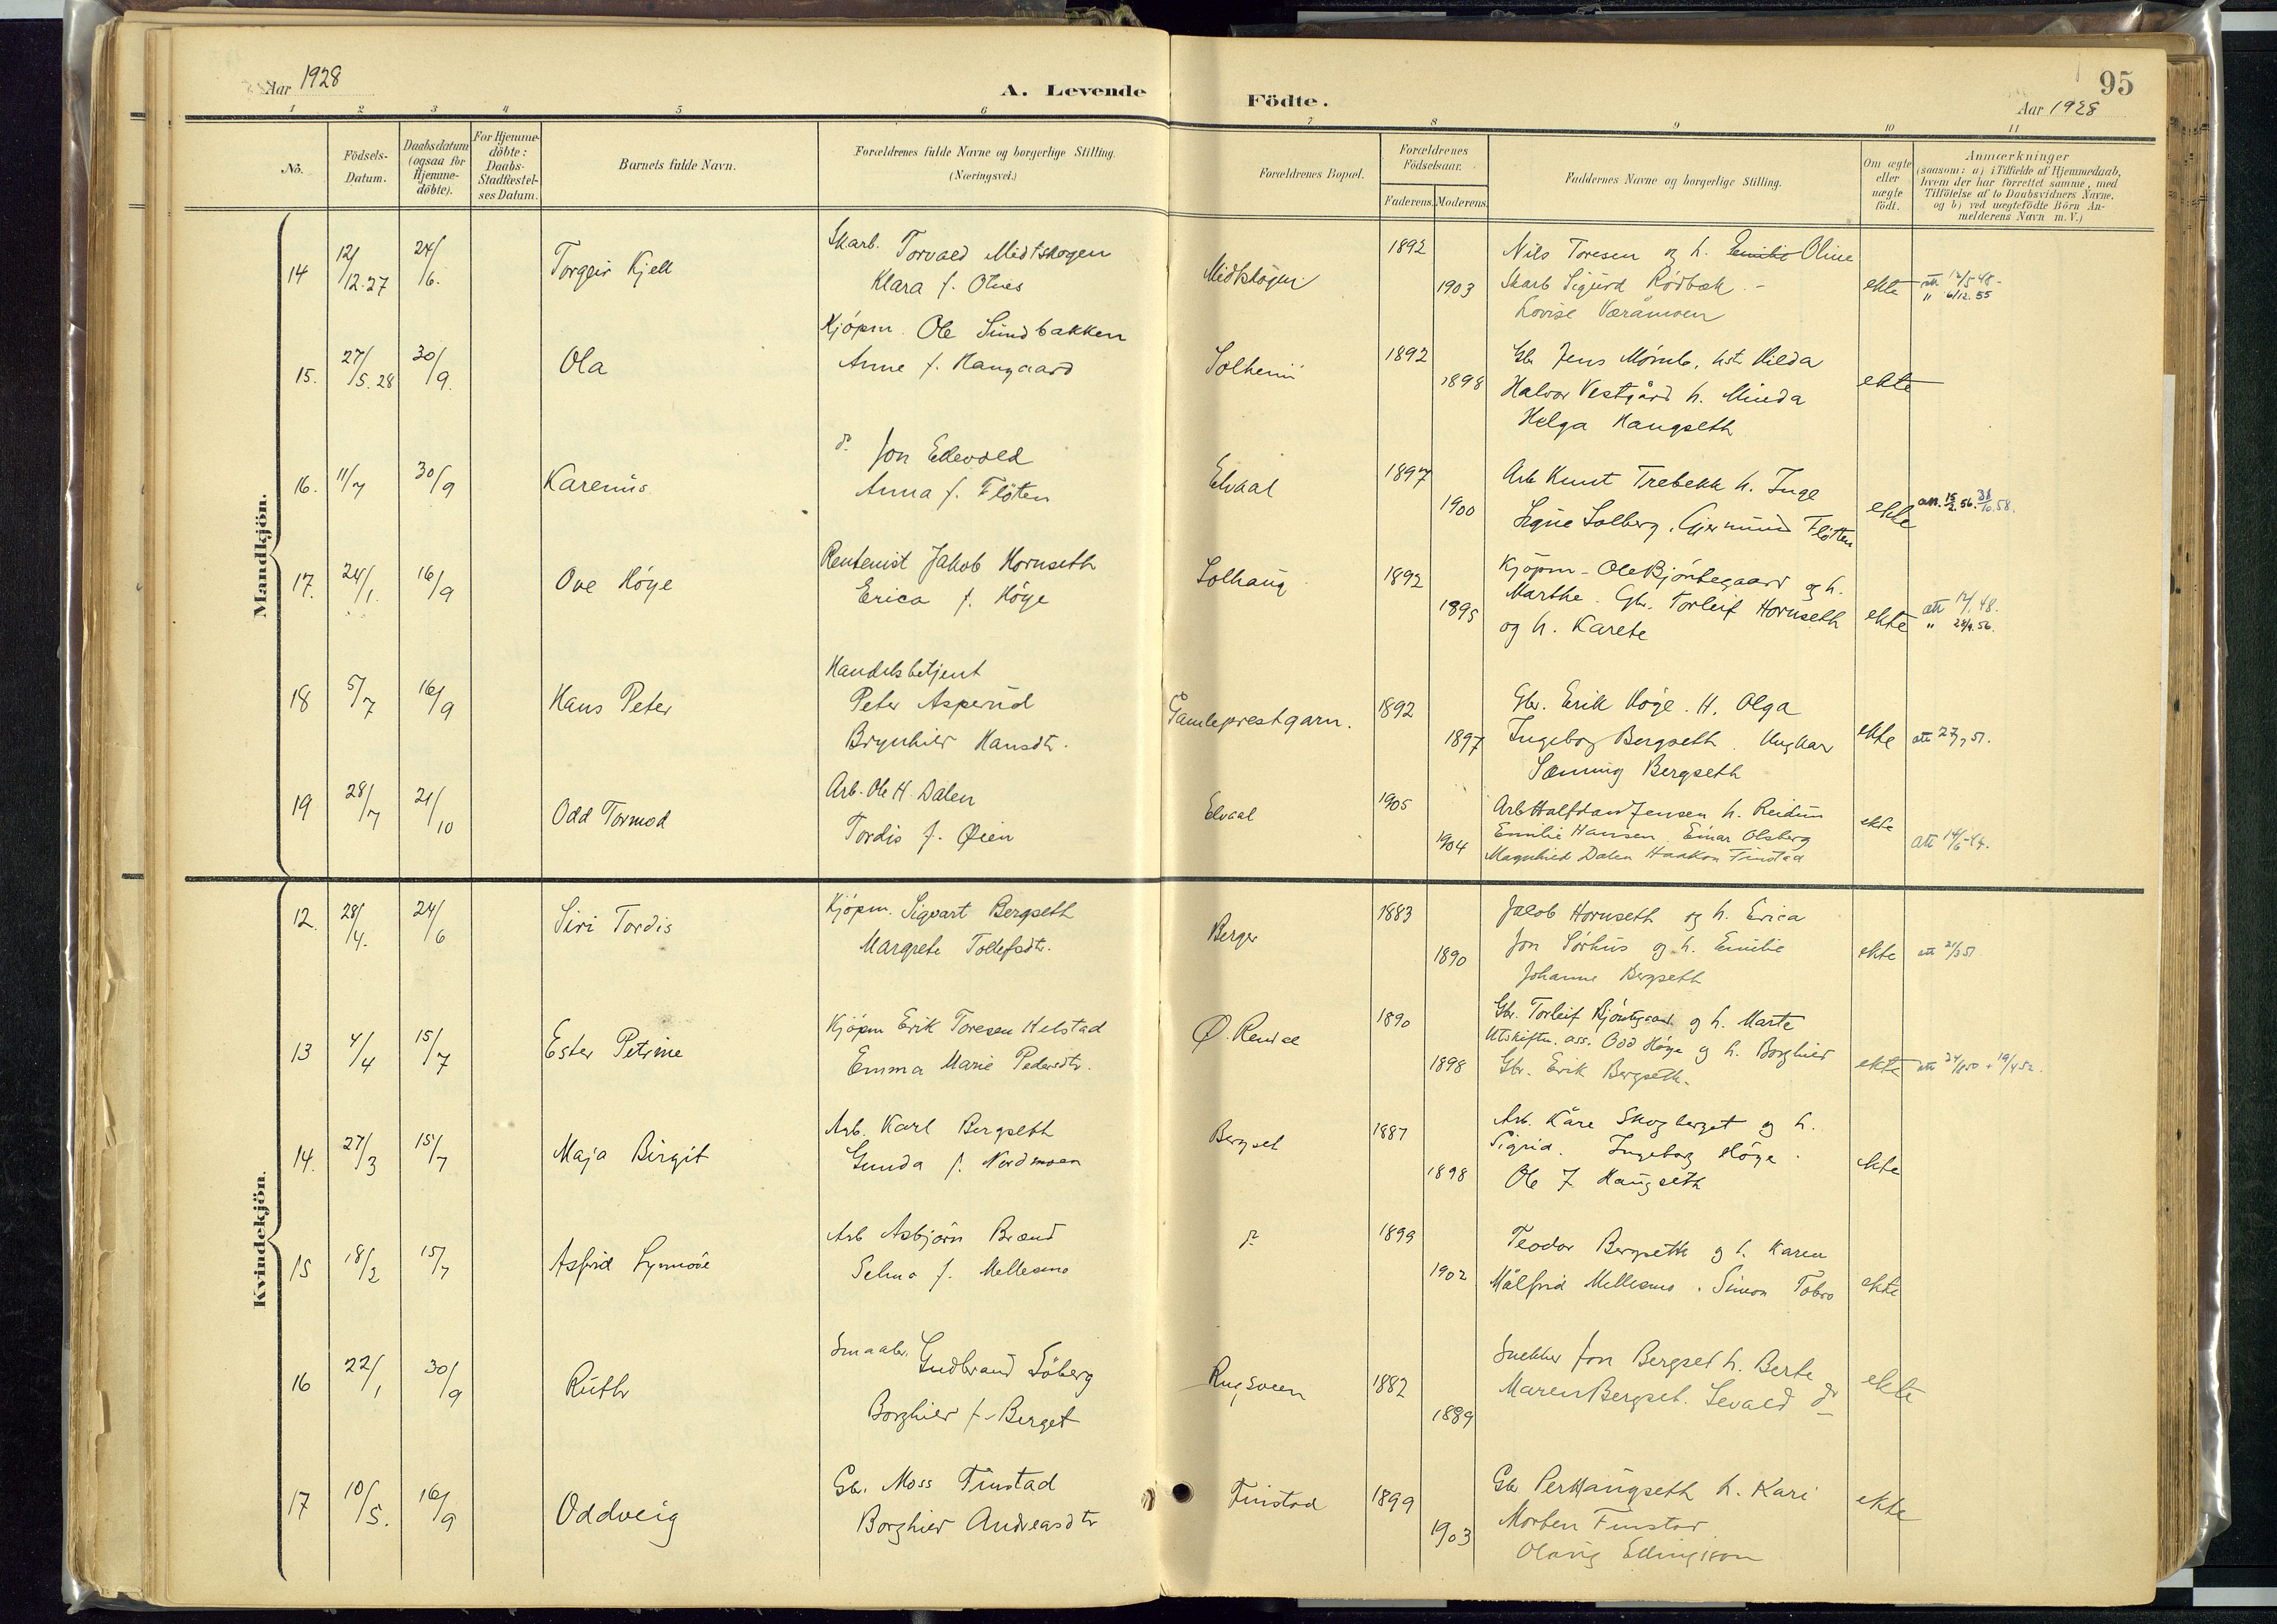 Aar 1928
A. Levende Födte.
95
Aar 1928
1 2 3 4 5 6 7 8 9 10 11
No.
Födsels-Datum.
Daabsdatum (ogsaa for Hjemme-döbte).
For Hjemme-döbte: Daabs-Stadfæstel-ses Datum.
Barnets fulde Navn.
Forældrenes fulde Navne og borgerlige Stilling. (Næringsvei.)
Forældrenes Bopæl.
Forældrenes Födselsaar.
Faderens. Moderens.
Faddernes Navne og borgerlige Stilling.
Om ægte eller uægte födt.
Anmærkninger
(saasom: a) i Tilfælde af Hjemmedaab,
hvem der har forrettet samme, med
Tilföielse af to Daabsvidners Navne,
og b) ved uægtefödte Börn An-
melderens Navn m. V.)
Mandkjön.
14 12/12.27 24/6. Torgeir Kjell
Skarb. Torvald Midtskogen
Klara f. Olnes
Midtskogen 1892 1903
Nils Toresen og h. Emilie Oline
Skarb Sigurd Rødbæk. -
Lovise Væråmoen
ekte att 12/5 48 -
" 6/12. 55
15. 27/5.28 30/9. Ola
Kjöpm. Ole Sundbakken
Anne f. Haugaard
Solheim 1892 1898
Gb. Jens Mømb, hst Hilda
Halvor Vestgård h. Minda
Helga Haugseth
ekte
16. 11/7 30/9 Karenus
do Jon Ellevold
Anna f. Flöten
Elvaal 1897 1900
Arb Knut Trebekk h. Inge
Signe Solberg. Gjermund Flöten
ekte att. 15/2. 56. 28/10.58.
17. 24/1. 16/9 Ove Höye
Rentenist Jakob Hornseth
Erica f. Höye
Solhaug 1892 1895
Kjöpm - Ole Bjöntegaard og h.
Marthe. Gbr. Torleif Hornseth
og h. Karete
ekte att 12/1 48.
" 28/9. 56.
18 5/7 16/9 Hans Peter
Handelsbetjent
Peter Asperud
Brynhild Hansdtr.
Gamleprestgarn. 1892 1897
Gbr. Erik Höye. H. Olga
Ingeborg Bergseth. Ungkar
Sæming Bergseth
ekte att 27/7 51.
19 28/7 21/10 Odd Tormod
Arb. Ole H. Dalen
Tordis f. Øien
Elvaal 1905 1904
Arb Halfdan Jensen h. Reidun
Emilie Hansen Einar Olsberg
Magnhild Dalen Haakon Finstad
ekte att 14/6-44.
Kvindekjön.
12. 28/4. 24/6 Siri Tordis
Kjöpm. Sigvart Bergseth
Margrete Tollefsdtr.
Berger 1883 1890
Jakob Hornseth og h. Erica
Jon Sørhus og h. Emilie
Johanne Bergseth
ekte att 21/3 51
13 4/4 15/7 Ester Petrine
Kjöpm Erik Toresen Helstad
Emma Marie Pedersdtr.
Ø. Rendal 1890 1898
Gbr. Torleif Bjöntegaard og h. Marte
Utskiftn. ass. Odd Höye og h. Borghild
Gbr. Erik Bergseth.
ekte att 24/8 50 + 19/4 52.
14. 27/3 15/7 Maja Birgit
Arb. Karl Bergseth
Gunda f. Nordmoen
Bergset 1887 1898
Arb. Kåre Skogberget og h.
Sigrid. Ingeborg Höye.
Ole J. Haugseth
ekte
15 18/2 15/7 Asfrid Synnöve
Arb Asbjörn Brænd
Selma f. Mellesmo
do 1899 1902
Teodor Bergseth og h. Karen
Målfrid Mellesmo. Simon Tobro
ekte
16 22/1 30/9 Ruth
Smaabr. Gudbrand Söberg
Borghild f. Berget
Rugsveen 1882 1889
Snekker Jon Bergset h. Berte
Maren Bergset. Sevald do
ekte
17 10/5. 16/9 Oddveig
Gbr. Moss Finstad
Borghild Andreasdtr
Finstad 1899 1903
Gbr Per Haugseth h. Kari
Morten Finstad
Olaug Ellingsson
ekte